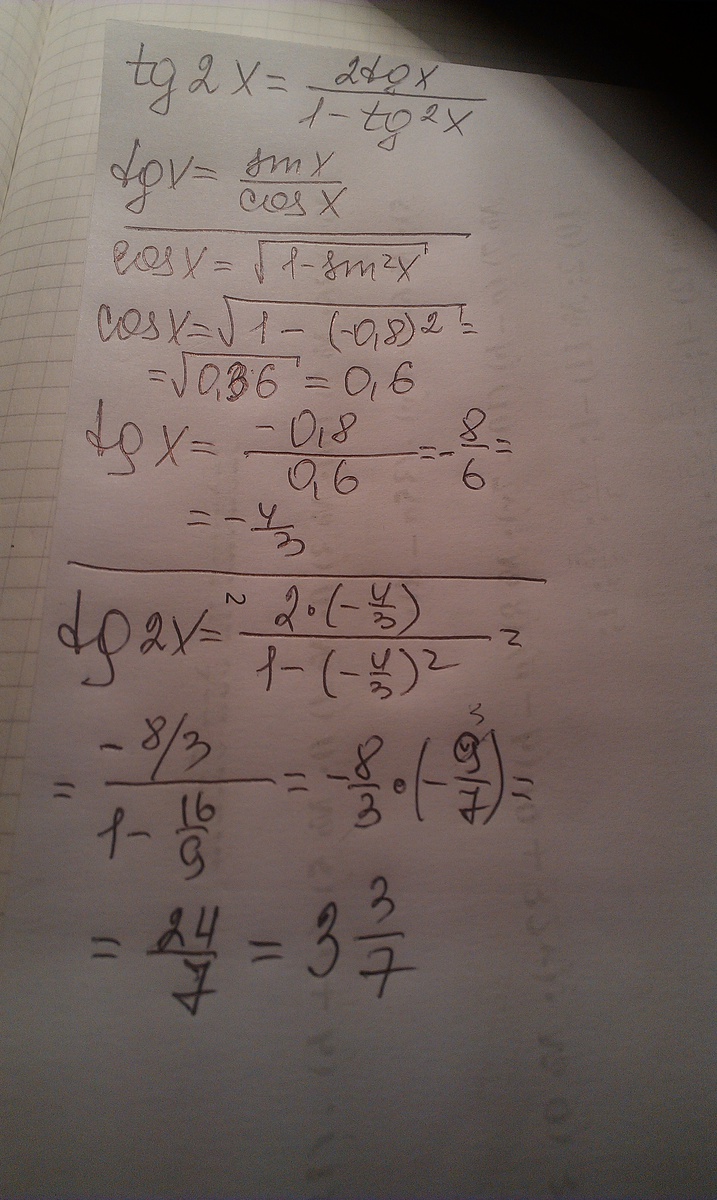 tg 2x = 2tgx / 1 - tg²x
tgx = sinx / cosx
cosx = √1-sin²x
cosx = √1 - (-0,8)² =
= √0,36 = 0,6
tgx = -0,8 / 0,6 = - 8/6 =
= - 4/3
tg 2x = = 2·(-4/3) / 1-(-4/3)² =
= -8/3 / 1 - 16/9 = - 8/3 · (- 9/7) =
= 24/7 = 3 3/7